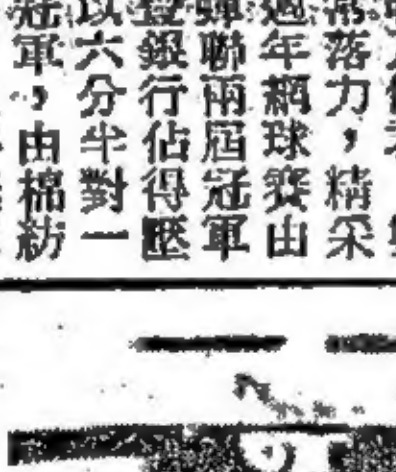 常落力,精采
週年網球賽由
蟬聯兩屆冠軍
登銀行佔得壓
以六分半對一
冠軍,由棉紡